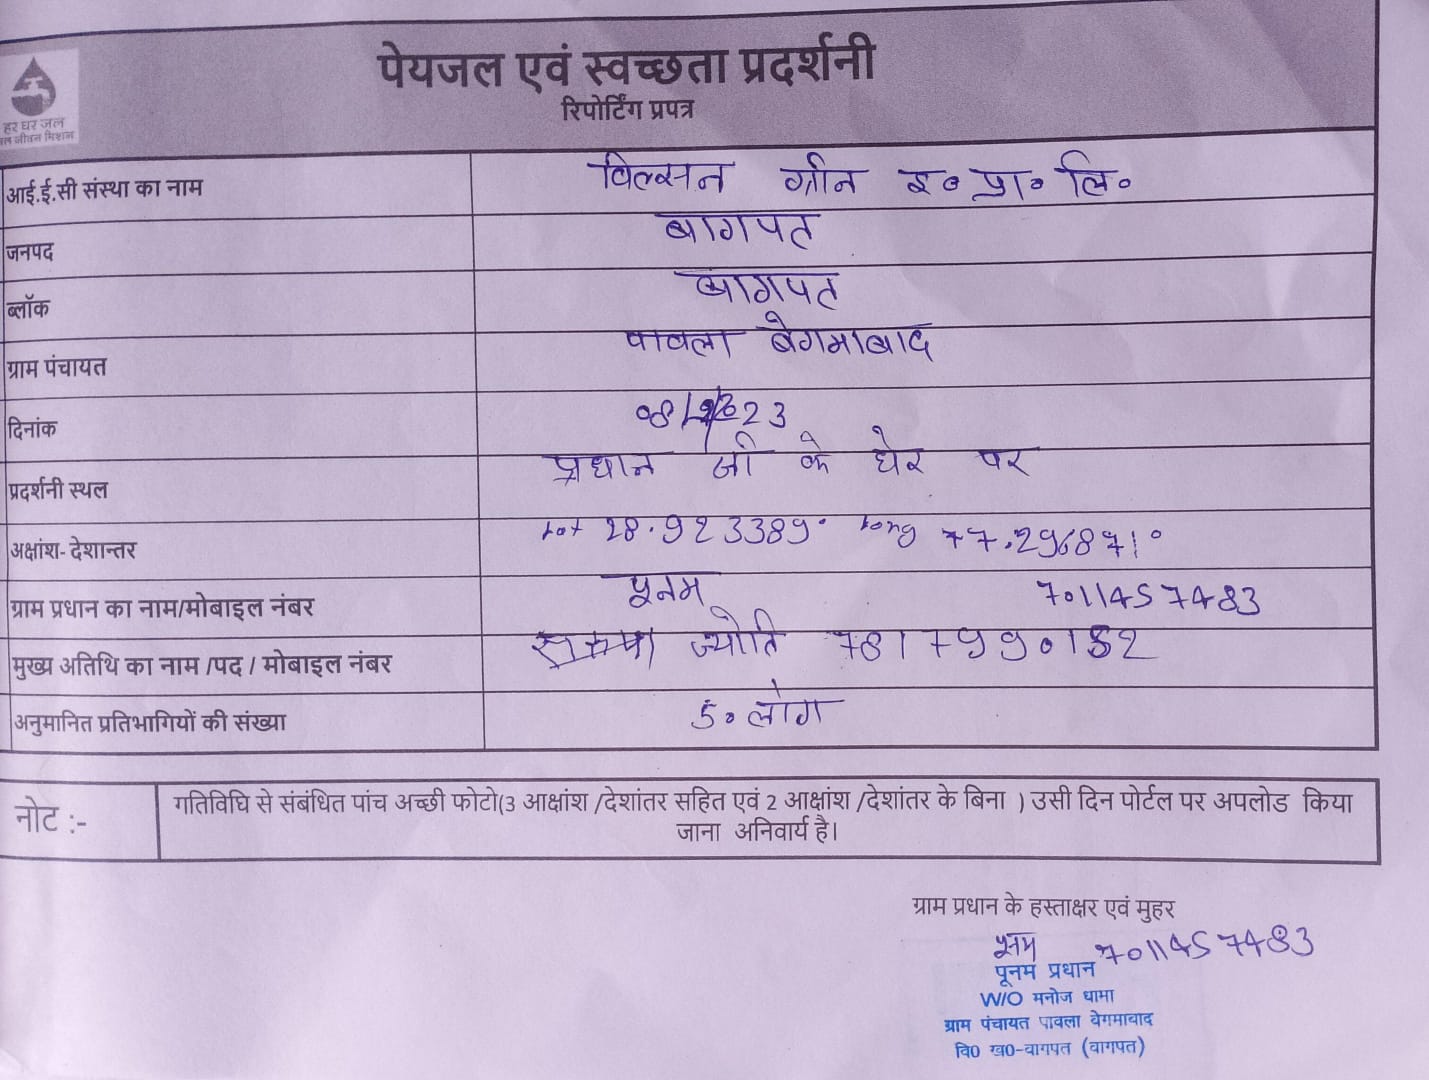 पेयजल एवं स्वच्छता प्रदर्शनी
रिपोर्टिंग प्रपत्र
हर घर जल
जल जीवन मिशन
आई.ई.सी संस्था का नाम विल्सन ग्रीन इ॰ प्रा॰ लि॰
जनपद बागपत
ब्लॉक बागपत
ग्राम पंचायत पावला बेगमाबाद
दिनांक
प्रदर्शनी स्थल प्रधान जी के घेर पर
अक्षांश- देशान्तर Lat 28.923389° Long 77.296871°
ग्राम प्रधान का नाम/मोबाइल नंबर पूनम 7011457483
मुख्य अतिथि का नाम /पद / मोबाइल नंबर ज्योति
अनुमानित प्रतिभागियों की संख्या 50 लोग
नोट :- गतिविधि से संबंधित पांच अच्छी फोटो(3 आक्षांश /देशांतर सहित एवं 2 आक्षांश /देशांतर के बिना ) उसी दिन पोर्टल पर अपलोड किया
जाना अनिवार्य है।
ग्राम प्रधान के हस्ताक्षर एवं मुहर
पूनम 7011457483
पूनम प्रधान
W/O मनोज धामा
ग्राम पंचायत पावला बेगमाबाद
वि0 ख0-बागपत (बागपत)